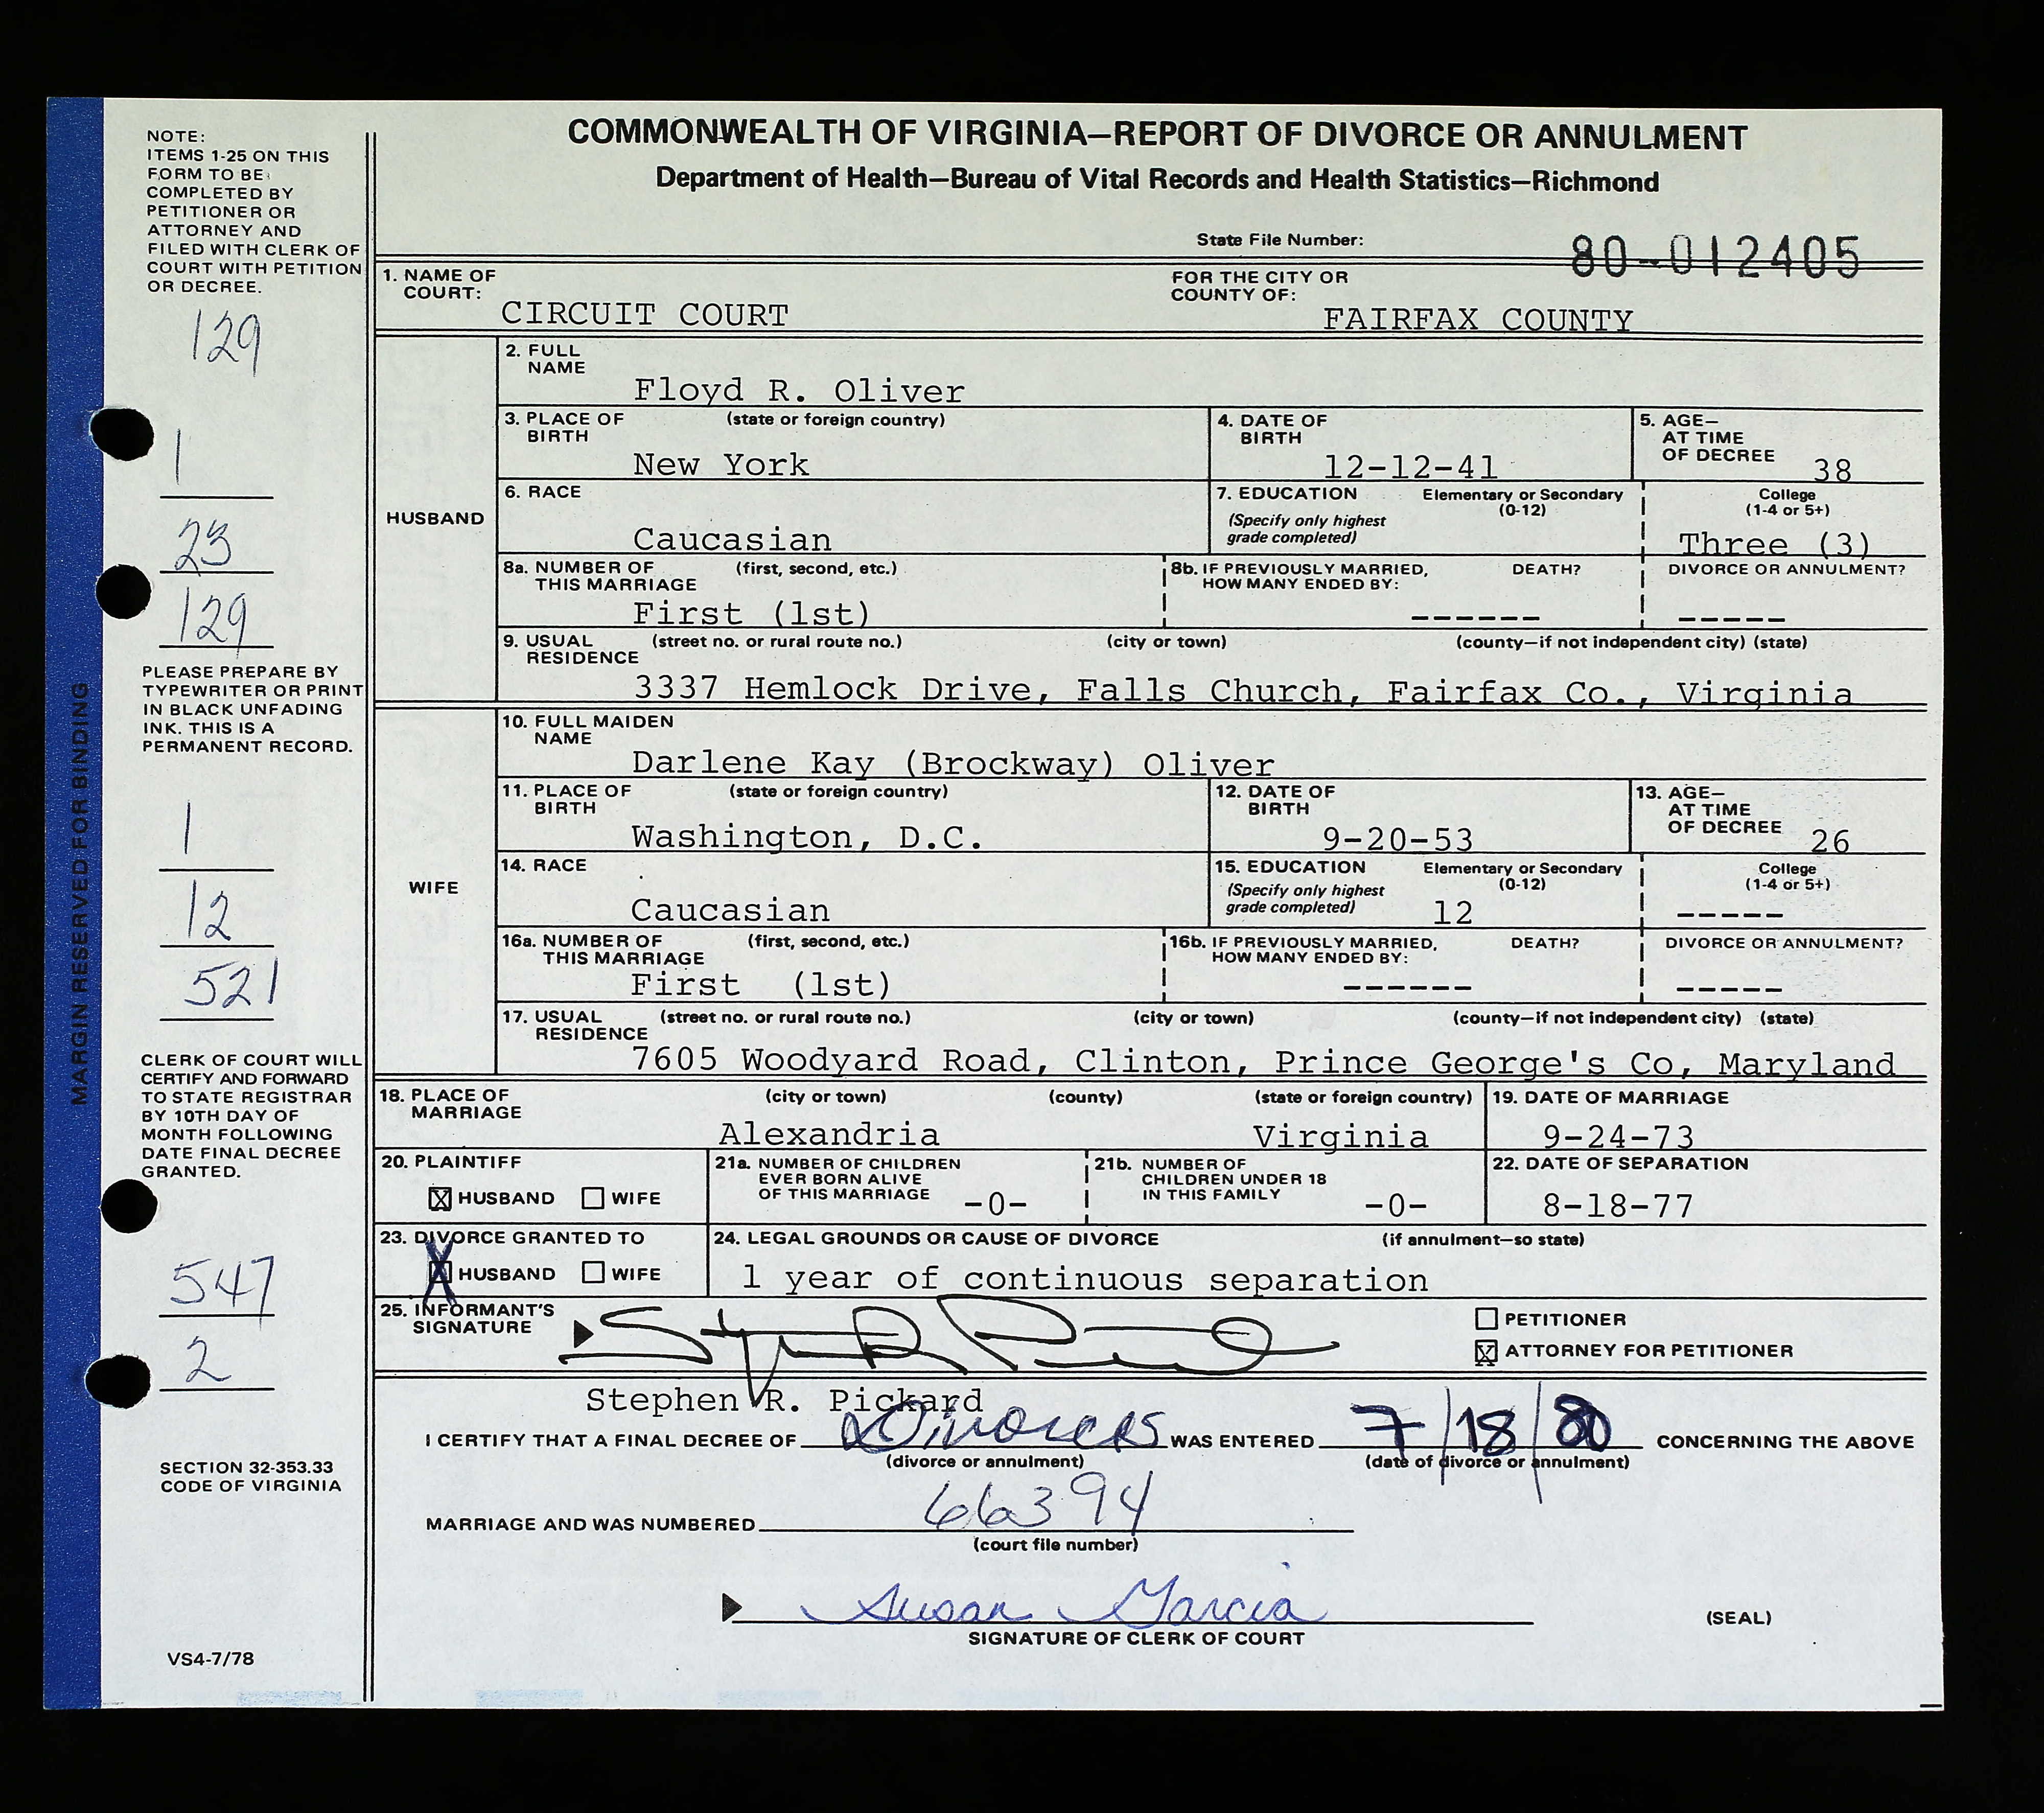 COMMONWEALTH OF VIRGINIA—REPORT OF DIVORCE OR ANNULMENT
Department of Health—Bureau of Vital Records and Health Statistics—Richmond
State File Number: 80-012405
NOTE:
ITEMS 1-25 ON THIS
FORM TO BE
COMPLETED BY
PETITIONER OR
ATTORNEY AND
FILED WITH CLERK OF
COURT WITH PETITION
OR DECREE.
129
1
23
129
PLEASE PREPARE BY
TYPEWRITER OR PRINT
IN BLACK UNFADING
INK. THIS IS A
PERMANENT RECORD.
1
12
521
CLERK OF COURT WILL
CERTIFY AND FORWARD
TO STATE REGISTRAR
BY 10TH DAY OF
MONTH FOLLOWING
DATE FINAL DECREE
GRANTED.
547
2
SECTION 32-353.33
CODE OF VIRGINIA
VS4-7/78
MARGIN RESERVED FOR BINDING
1. NAME OF COURT: CIRCUIT COURT
FOR THE CITY OR COUNTY OF: FAIRFAX COUNTY
HUSBAND
2. FULL NAME
Floyd R. Oliver
3. PLACE OF BIRTH (state or foreign country)
New York
4. DATE OF BIRTH
12-12-41
5. AGE— AT TIME OF DECREE 38
6. RACE
Caucasian
7. EDUCATION (Specify only highest grade completed)
Elementary or Secondary (0-12)
College (1-4 or 5+)
Three (3)
8a. NUMBER OF THIS MARRIAGE (first, second, etc.)
First (1st)
8b. IF PREVIOUSLY MARRIED, HOW MANY ENDED BY:
DEATH? ------
DIVORCE OR ANNULMENT? -----
9. USUAL RESIDENCE (street no. or rural route no.) (city or town) (county—if not independent city) (state)
3337 Hemlock Drive, Falls Church, Fairfax Co., Virginia
WIFE
10. FULL MAIDEN NAME
Darlene Kay (Brockway) Oliver
11. PLACE OF BIRTH (state or foreign country)
Washington, D.C.
12. DATE OF BIRTH
9-20-53
13. AGE— AT TIME OF DECREE 26
14. RACE
Caucasian
15. EDUCATION (Specify only highest grade completed)
Elementary or Secondary (0-12)
12
College (1-4 or 5+)
-----
16a. NUMBER OF THIS MARRIAGE (first, second, etc.)
First (1st)
16b. IF PREVIOUSLY MARRIED, HOW MANY ENDED BY:
DEATH? ------
DIVORCE OR ANNULMENT? -----
17. USUAL RESIDENCE (street no. or rural route no.) (city or town) (county—if not independent city) (state)
7605 Woodyard Road, Clinton, Prince George's Co, Maryland
18. PLACE OF MARRIAGE (city or town) (county) (state or foreign country)
Alexandria Virginia
19. DATE OF MARRIAGE
9-24-73
20. PLAINTIFF
X HUSBAND WIFE
21a. NUMBER OF CHILDREN EVER BORN ALIVE OF THIS MARRIAGE -0-
21b. NUMBER OF CHILDREN UNDER 18 IN THIS FAMILY -0-
22. DATE OF SEPARATION
8-18-77
23. DIVORCE GRANTED TO
X HUSBAND WIFE
24. LEGAL GROUNDS OR CAUSE OF DIVORCE (if annulment—so state)
1 year of continuous separation
25. INFORMANT'S SIGNATURE
PETITIONER
X ATTORNEY FOR PETITIONER
Stephen R. Pickard
I CERTIFY THAT A FINAL DECREE OF Divorces WAS ENTERED 7/18/80 CONCERNING THE ABOVE
(divorce or annulment) (date of divorce or annulment)
MARRIAGE AND WAS NUMBERED 66394
(court file number)
Susan Garcia
SIGNATURE OF CLERK OF COURT
(SEAL)